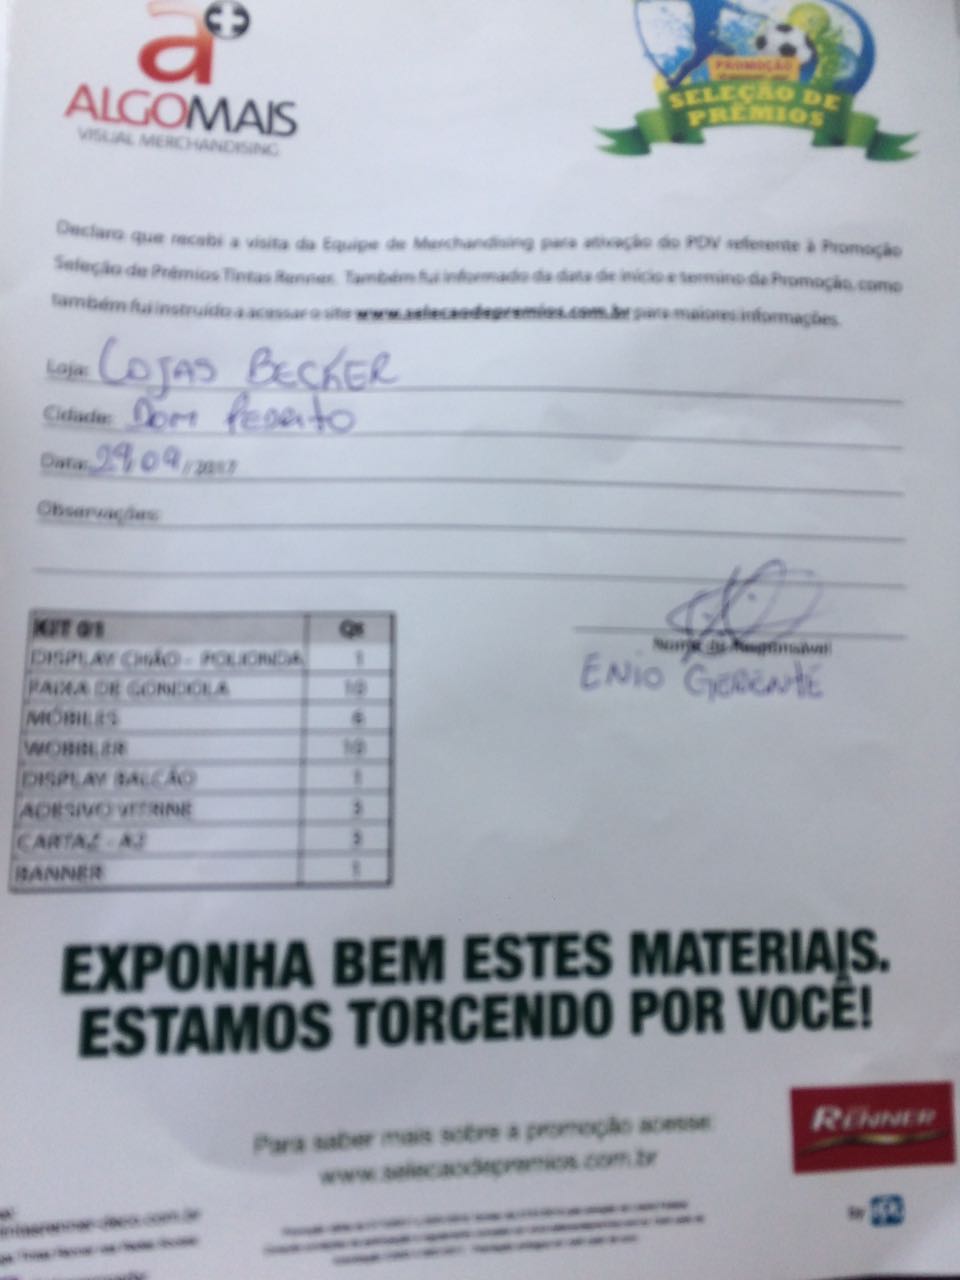 a+
ALGOMAIS
VISUAL MERCHANDISING
PROMOÇÃO
SELEÇÃO DE
PRÊMIOS
Declaro que recebi a visita da Equipe de Merchandising para ativação do PDV referente à Promoção
Seleção de Prêmios Tintas Renner. Também fui informado da data de início e termino da Promoção, como
também fui instruído a acessar o site www.selecaodepremios.com.br para maiores informações.
Loja: LOJAS BECKER
Cidade: DOM PEDRITO
Data: 29/09/2017
Observações:
KIT 01 Qt
DISPLAY CHÃO - POLIONDA 1
FAIXA DE GONDOLA 10
MÓBILES 6
WOBBLER 10
DISPLAY BALCÃO 1
ADESIVO VITRINE
CARTAZ - A2
BANNER 1
Nome do Responsável
ENIO GERENTE
EXPONHA BEM ESTES MATERIAIS.
ESTAMOS TORCENDO POR VOCÊ!
Para saber mais sobre a promoção acesse:
www.selecaodepremios.com.br
RENNER
by PPG